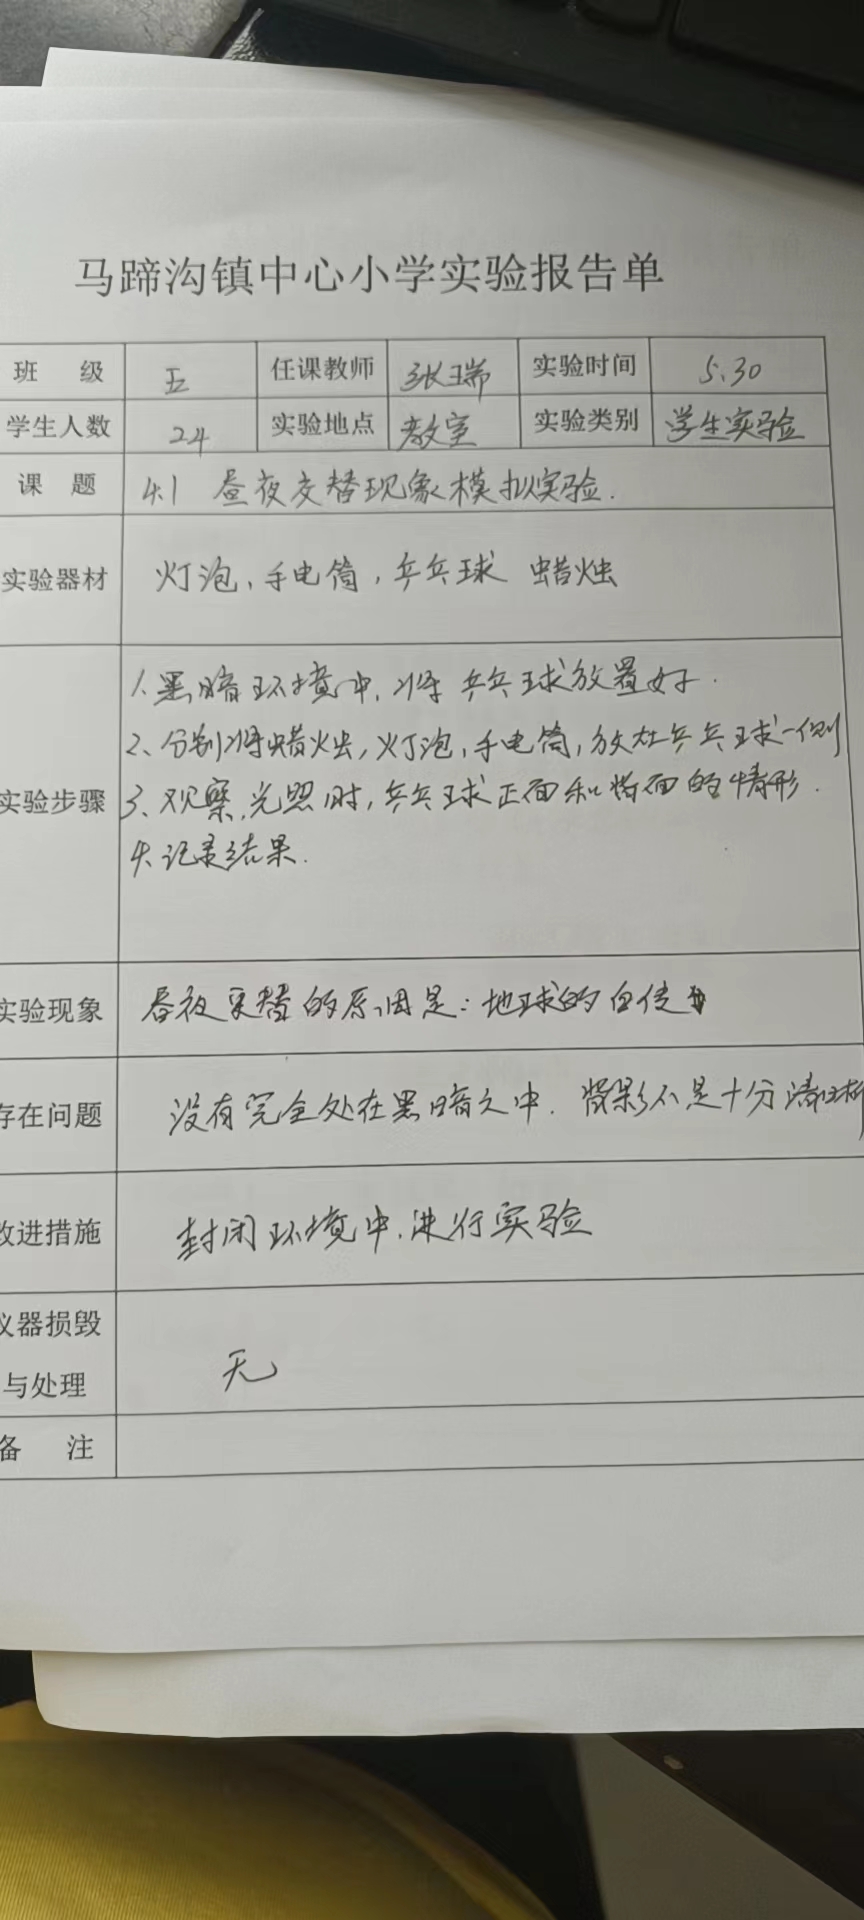 马蹄沟镇中心小学实验报告单
班 级 五 任课教师 张瑞 实验时间 5.30
学生人数 24 实验地点 教室 实验类别 学生实验
课 题 4.1 昼夜交替现象模拟实验.
实验器材 灯泡、手电筒,乒乓球 蜡烛
1.黑暗环境中,将乒乓球放置好.
2、分别将蜡烛,灯泡,手电筒,放在乒乓球一侧
实验步骤 3、观察,光照时,乒乓球正面和背面的情形.
4.记录结果.
实验现象 昼夜交替的原因是:地球的自传
存在问题 没有完全处在黑暗之中.背影不是十分清晰
改进措施 封闭环境中.进行实验
仪器损毁
与处理 无
备 注